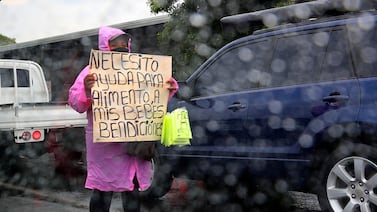 NECESITO
AYUDA PARA
ALIMENTO.
MIS BEBES
BENDICIONES